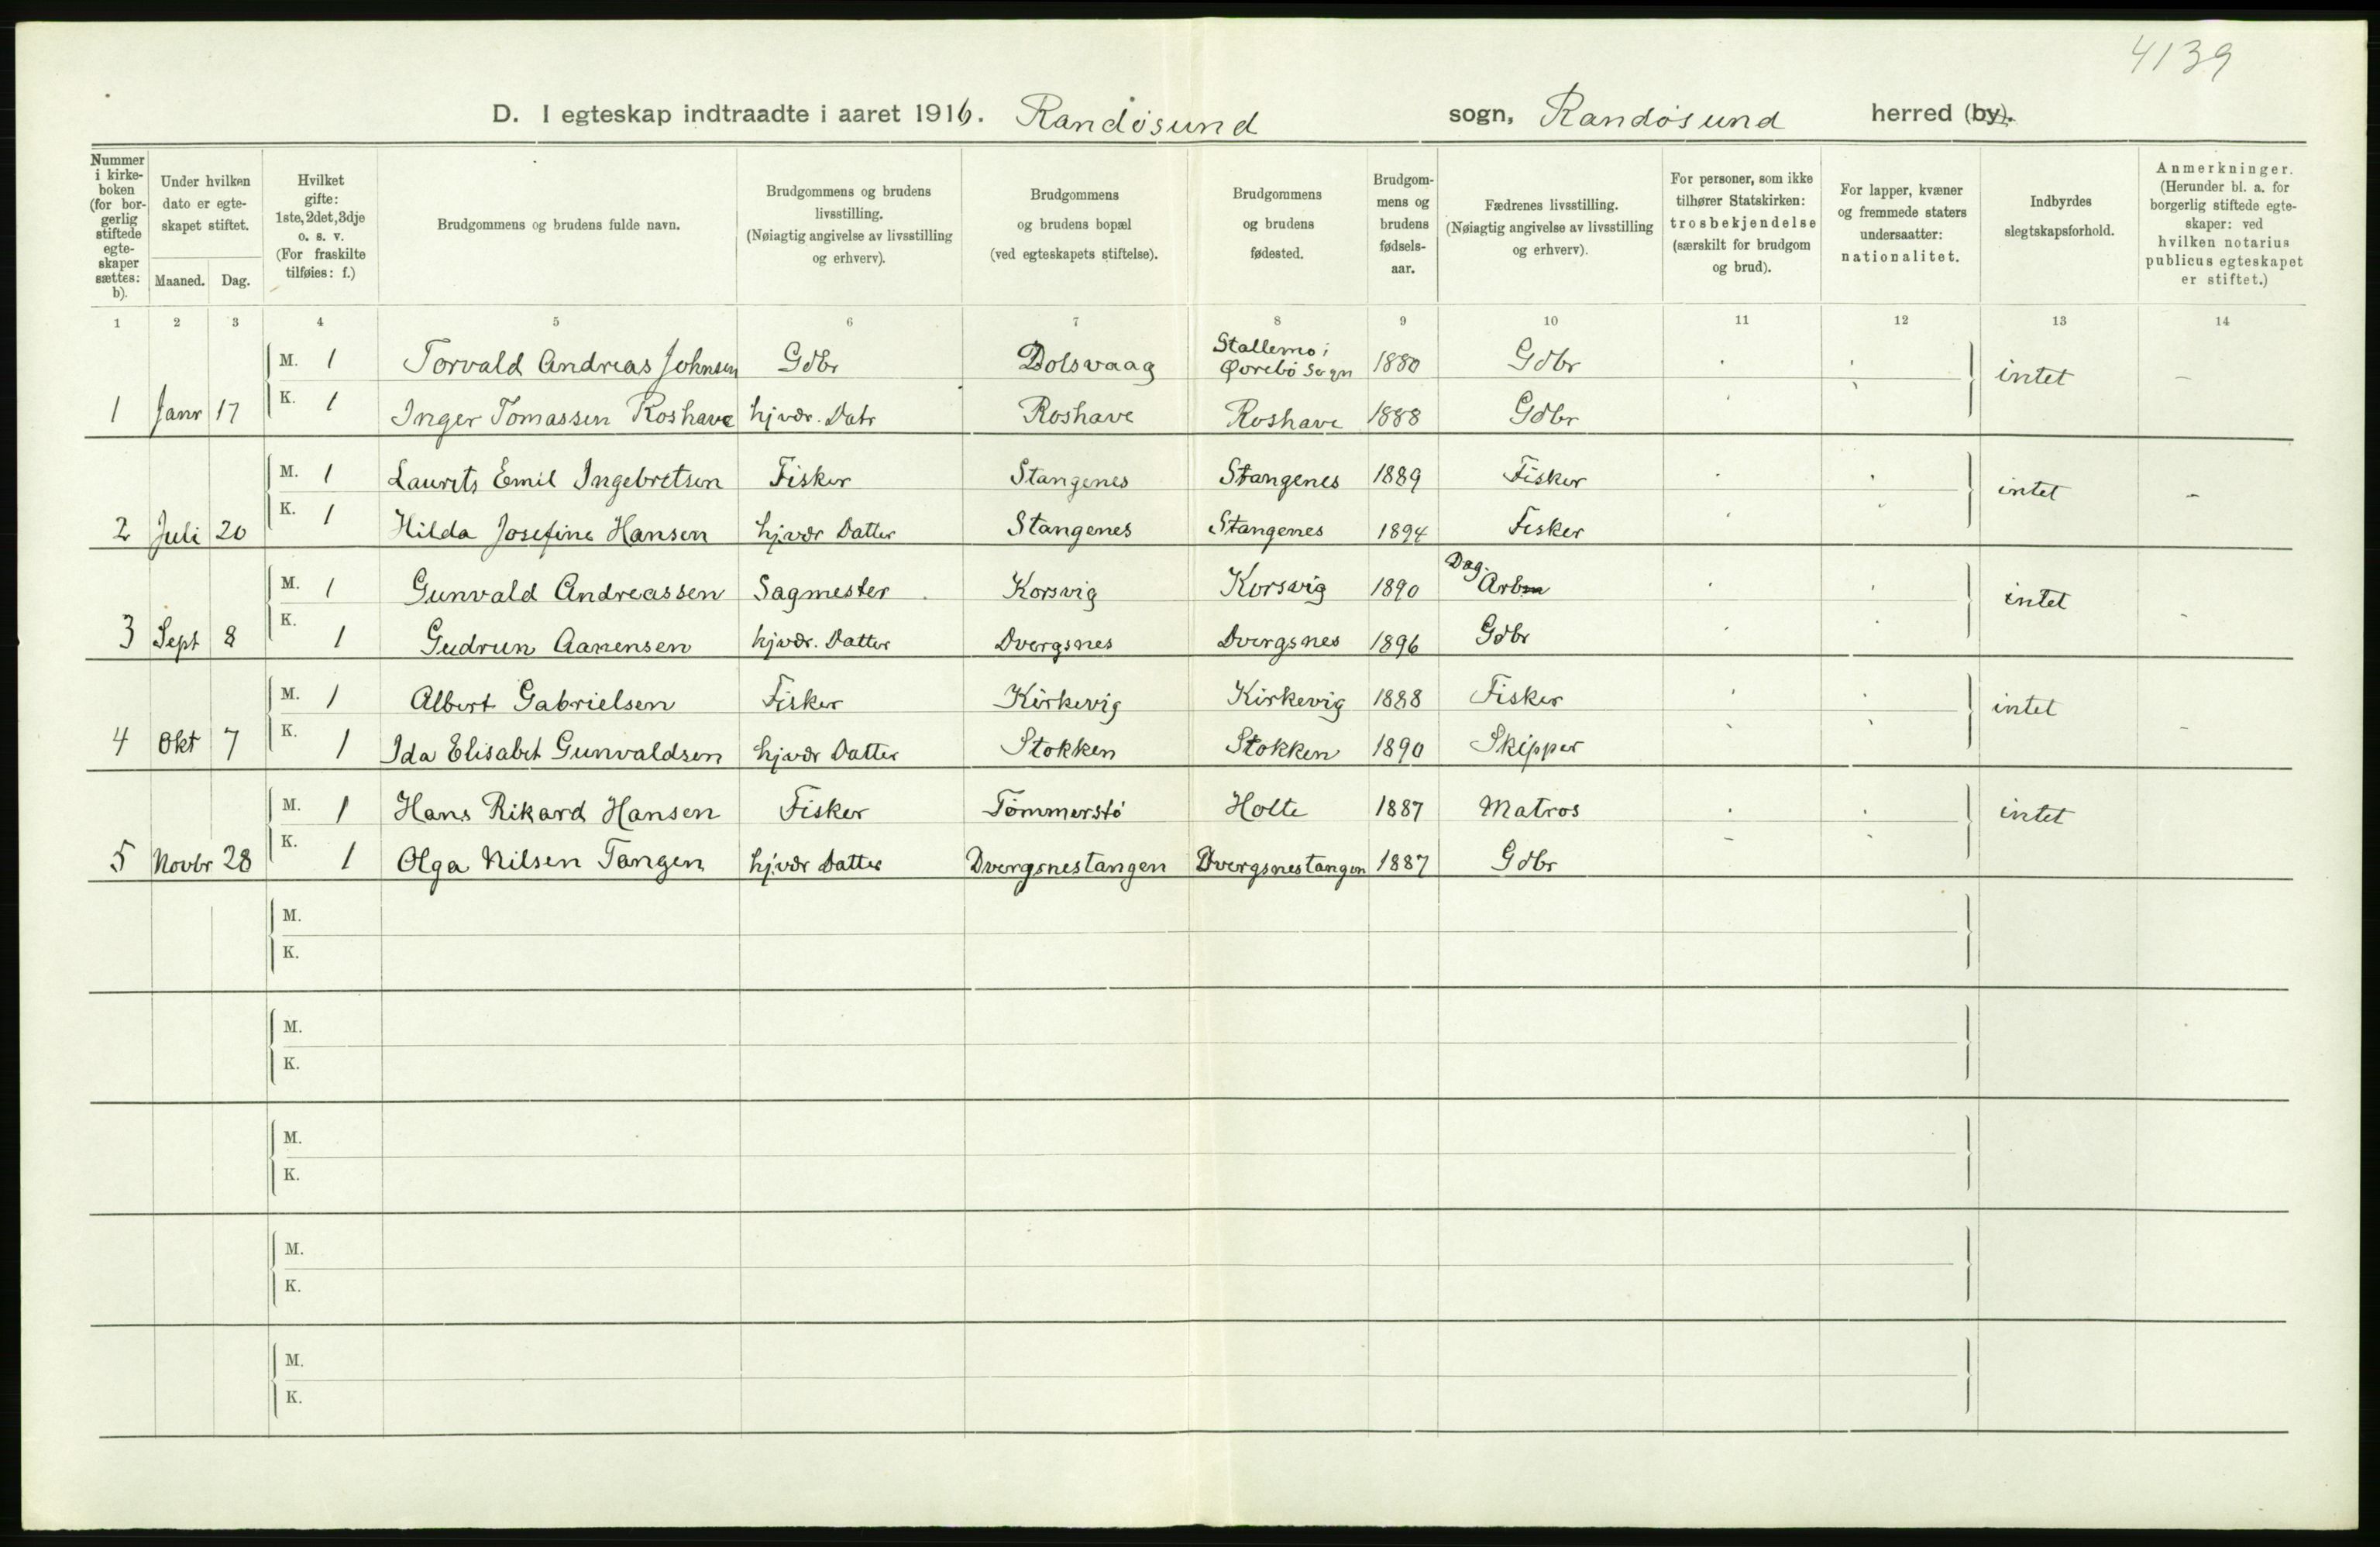 4139
D. I egteskap indtraadte i aaret 1916. Randøsund sogn, Randøsund herred (by).
Nummer i kirkeboken (for borgerlig stiftede egteskaper sættes: b).
Under hvilken dato er egteskapet stiftet.
Maaned. Dag.
Hvilket gifte: 1ste, 2det, 3dje o. s. v. (For fraskilte tilføies: f.)
Brudgommens og brudens fulde navn.
Brudgommens og brudens livsstilling. (Nøiagtig angivelse av livsstilling og erhverv).
Brudgommens og brudens bopæl (ved egteskapets stiftelse).
Brudgommens og brudens fødested.
Brudgommens og brudens fødselsaar.
Fædrenes livsstilling. (Nøiagtig angivelse av livsstilling og erhverv).
For personer, som ikke tilhører Statskirken: trosbekjendelse (særskilt for brudgom og brud).
For lapper, kvæner og fremmede staters undersaatter: nationalitet.
Indbyrdes slegtskapsforhold.
Anmerkninger. (Herunder bl. a. for borgerlig stiftede egteskaper: ved hvilken notarius publicus egteskapet er stiftet.)
1 2 3 4 5 6 7 8 9 10 11 12 13 14
M. 1 Torvald Andreas Johnsen Gdbr Dolsvaag Stallemo i Øvrebö Sogn 1880 Gdbr intet –
1 Janr 17 K. 1 Inger Tomassen Roshave hjvær. Datr Roshave Roshave 1888 Gdbr
M. 1 Laurits Emil Ingebretsen Fisker Stangenes Stangenes 1889 Fisker intet –
2 Juli 20 K. 1 Hilda Josefine Hansen hjvær Datter Stangenes Stangenes 1894 Fisker
M. 1 Gunvald Andreassen Sagmester Korsvig Korsvig 1890 Dag. Arb intet –
3 Sept 8 K. 1 Gudrun Aanensen hjvær. Datter Dvergsnes Dvergsnes 1896 Gdbr
M. 1 Albert Gabrielsen Fisker Kirkevig Kirkevig 1888 Fisker intet –
4 Okt 7 K. 1 Ida Elisabet Gunvaldsen hjvær Datter Stokken Stokken 1890 Skipper
M. 1 Hans Rikard Hansen Fisker Tømmerstø Holte 1887 Matros intet
5 Novbr 28 K. 1 Olga Nilsen Tangen hjvær Datter Dvergsnestangen Dvergsnestangen 1887 Gdbr
M.
K.
M.
K.
M.
K.
M.
K.
M.
K.